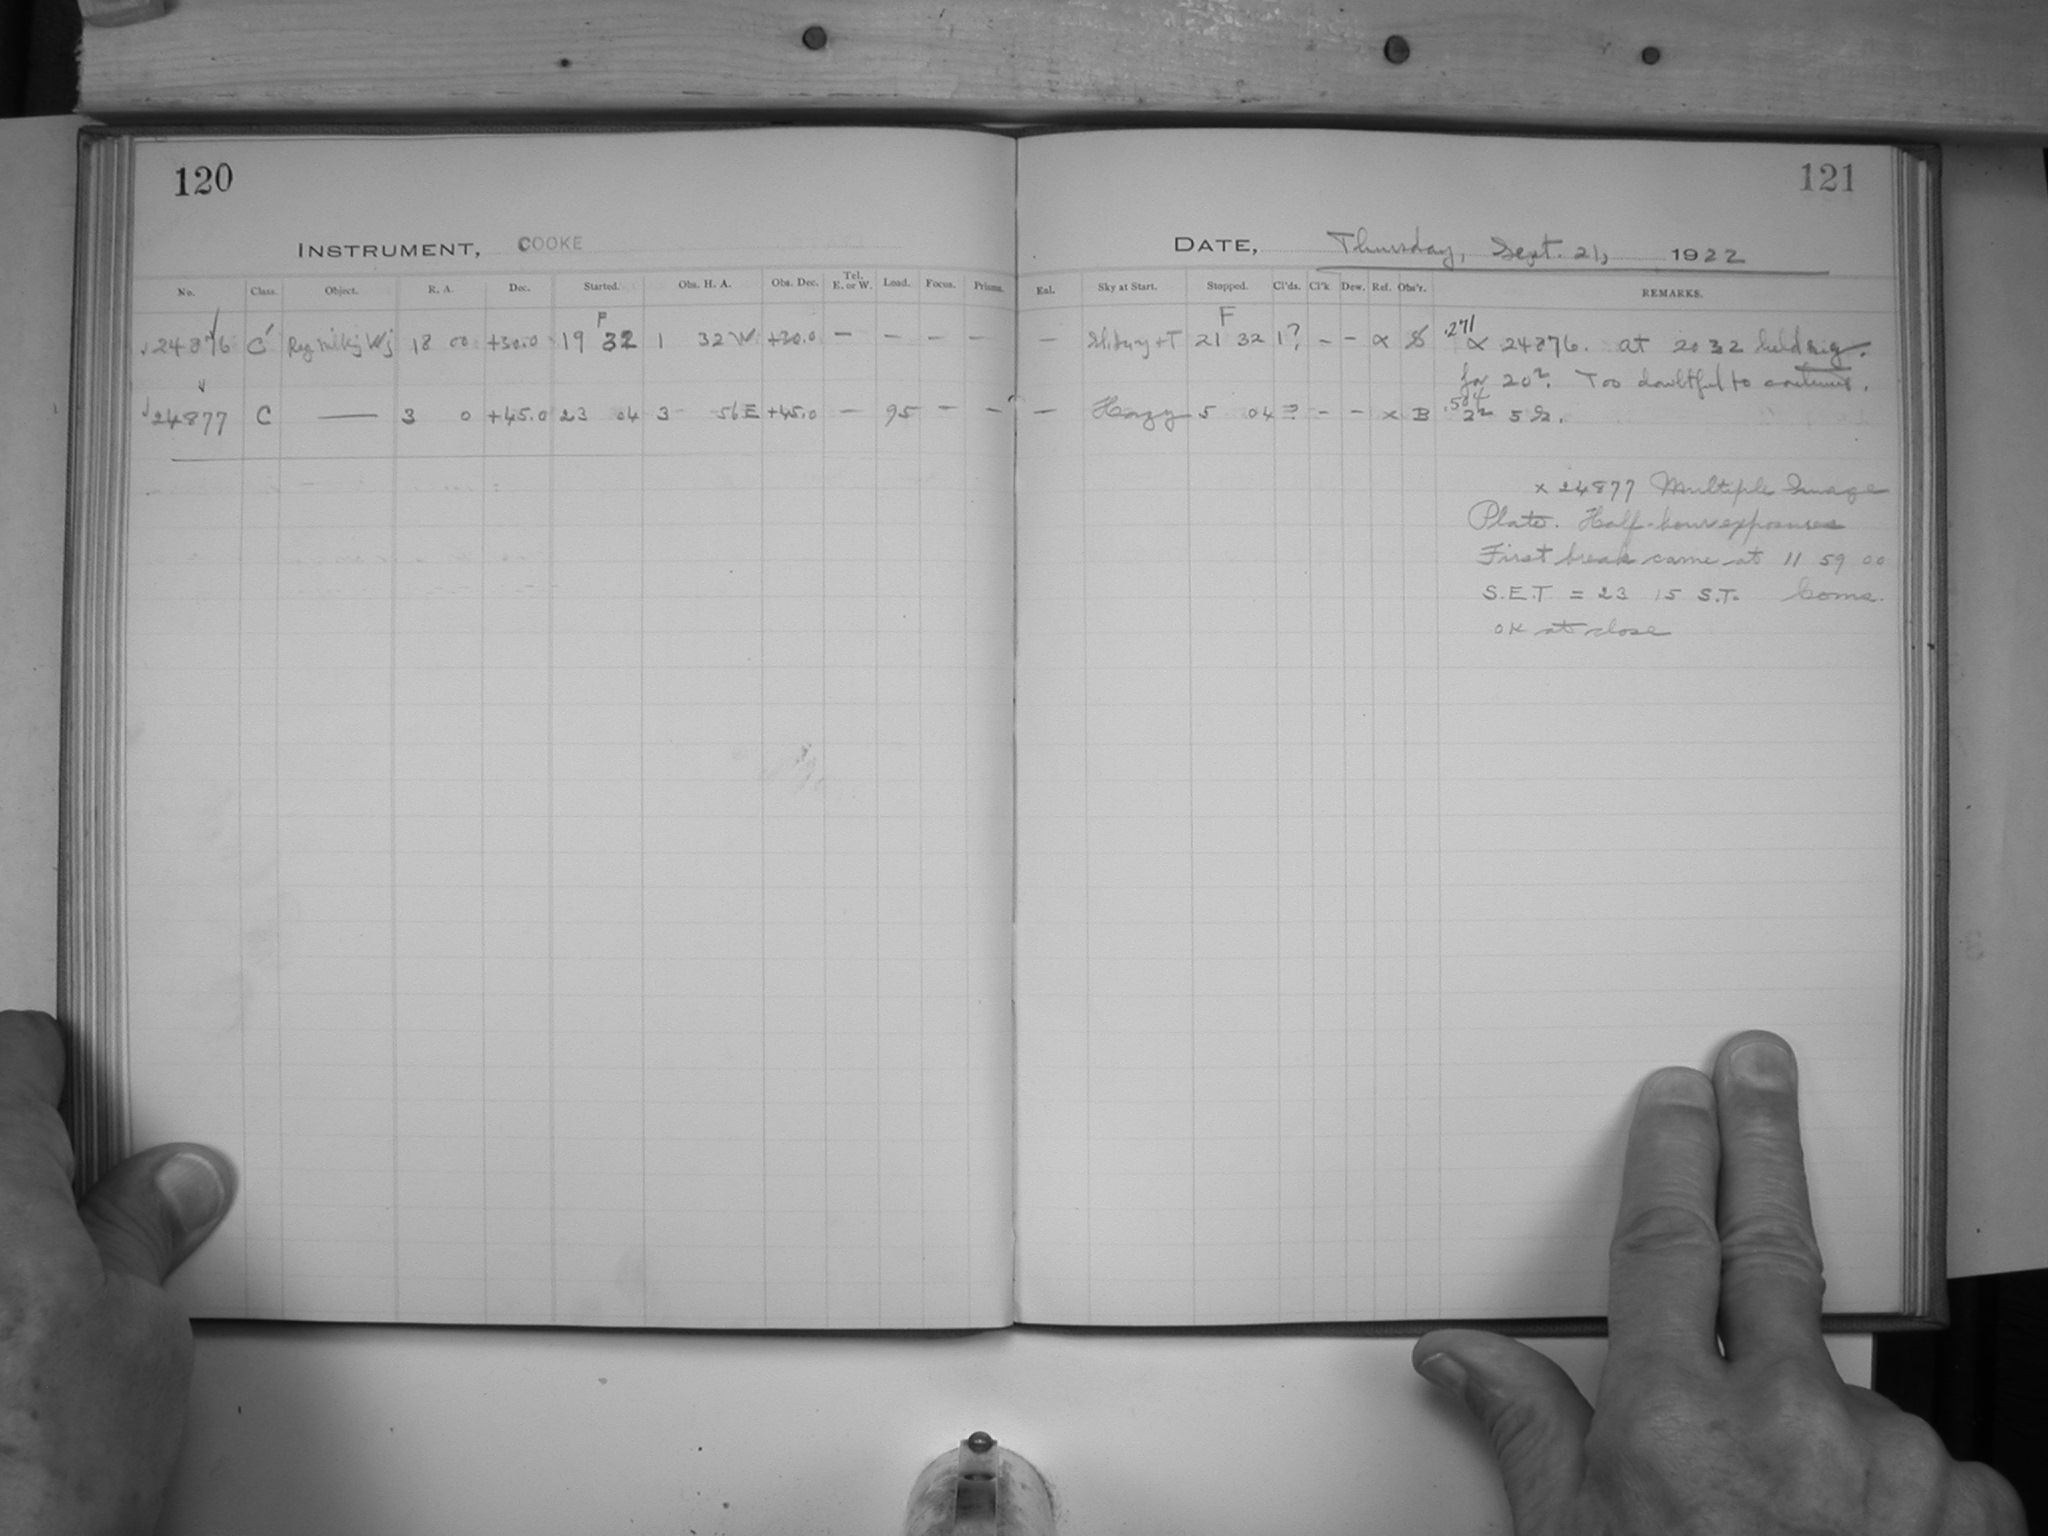 120
121
INSTRUMENT, COOKE
DATE, Thursday, Sept. 21, 1922
No. Class. Object. R. A. Dec. Started. Obs. H. A. Obs. Dec. Tel. E. or W. Load. Focus. Prisms. Eal. Sky at Start. Stopped. Cl'ds. Cl'k Dew. Ref. Obs'r. REMARKS.
F F
24876 C' Reg Milky Wy 18 00 +30.0 19 32 1 32 W +30.0 — — — — — 21 32 1? — — α S .271 α 24876. at 20 32 held
for 20m. Too doubtful to continue.
24877 C — 3 0 +45.0 23 04 3 56 E +45.0 — 95 — — — Hazy 5 04 ? — — x B .504
x 24877 Multiple Image
Plate. Half-hour exposures
First break came at 11 59 00
S.E.T = 23 15 S.T. Coma.
OK at close